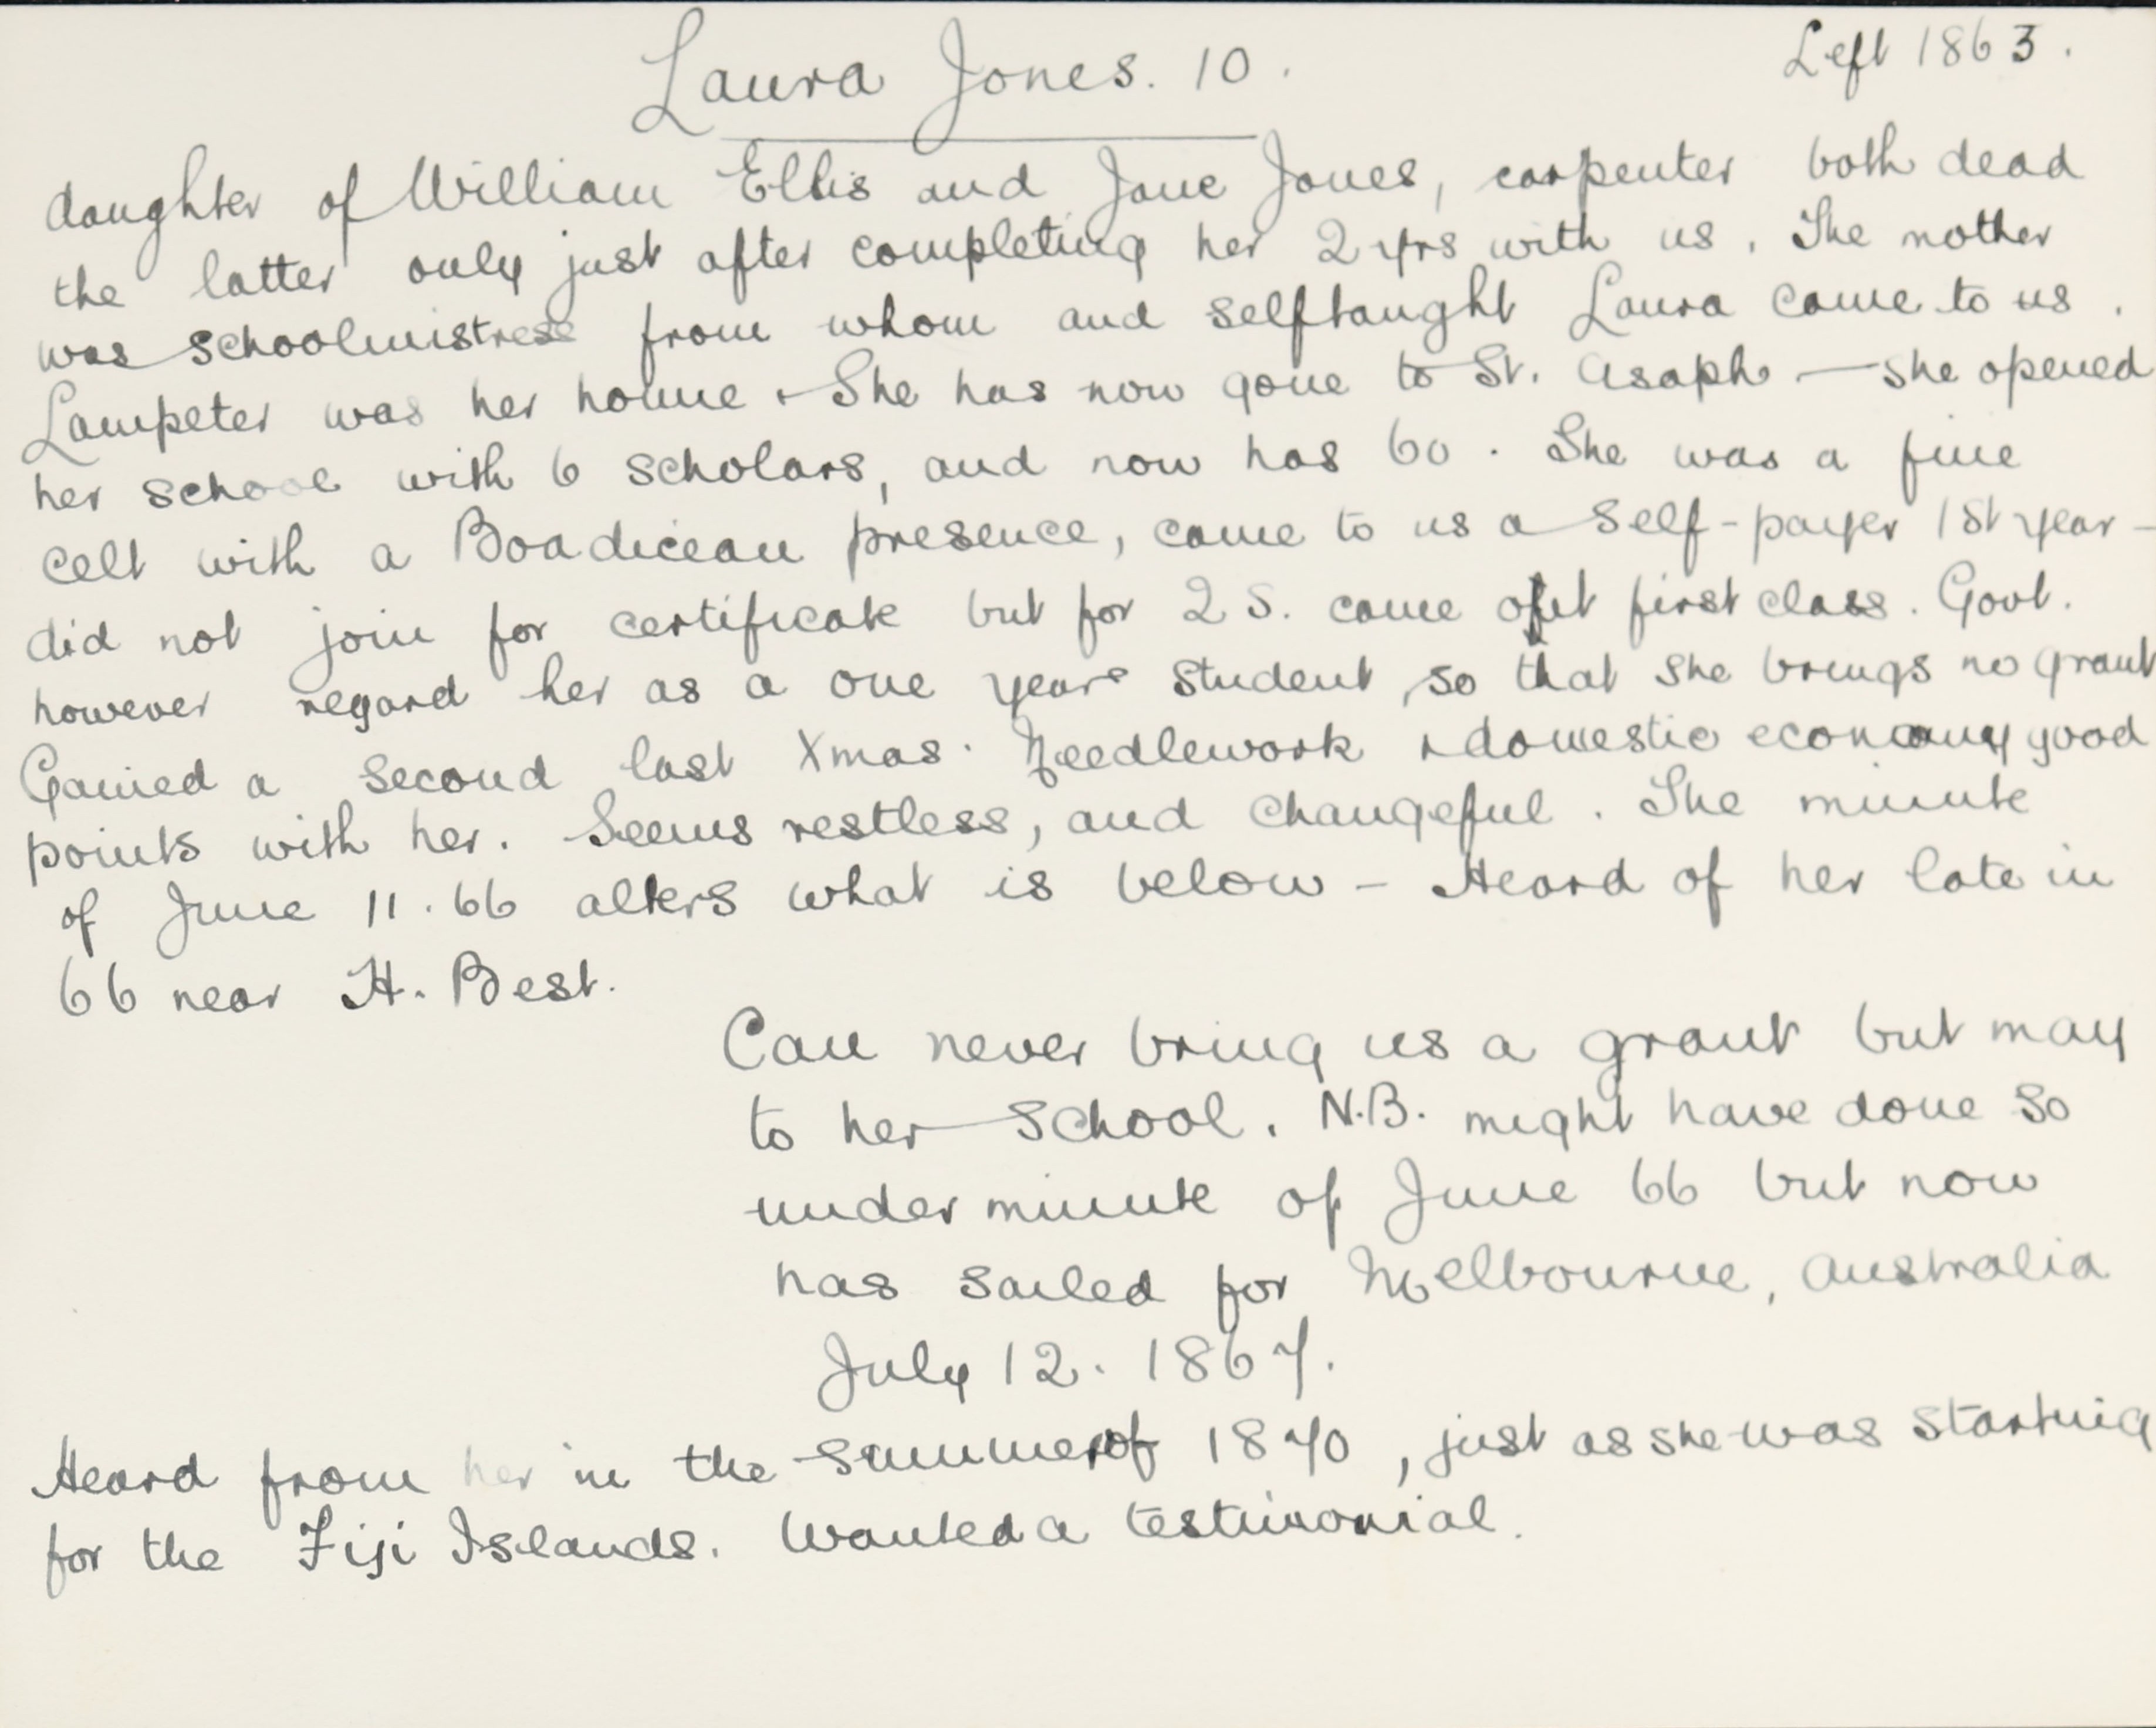 Laura Jones. 10.
Left 1863.
daughter of William Ellis and Jane Jones, carpenter both dead
the latter only just after completing her 2 yrs with us. The mother
was schoolmistress from whom and selftaught Laura came to us.
Lampeter was her home. She has now gone to St. Asaph — she opened
her school with 6 scholars, and now has 60. She was a fine
celt with a Boadicean presence, came to us a self-payer 1st year —
did not join for certificate but for 2 S. came out first class. Govt.
however regard her as a one years student, so that she brings no grant
Gained a second last Xmas. Needlework & domestic economy good
points with her. Seems restless, and changeful. The minute
of June 11. 66 alters what is below - Heard of her late in
66 near H. Best.
Can never bring us a grant but may
to her school. N.B. might have done so
under minute of June 66 but now
has sailed for Melbourne, Australia
July 12. 1867.
Heard from her in the summer of 1870, just as she was starting
for the Fiji Islands. Wanted a testimonial.